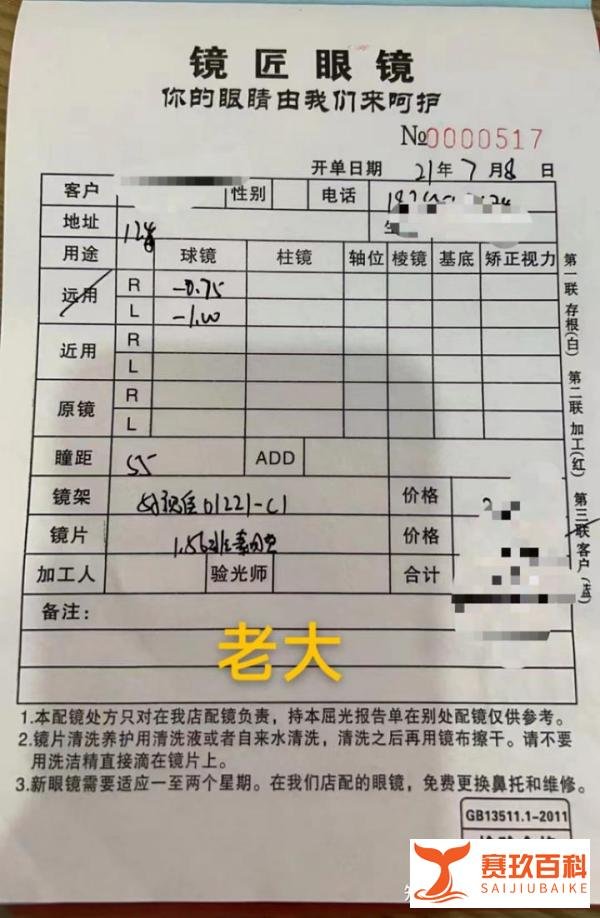 镜匠眼镜
你的眼睛由我们来呵护
№0000517
开单日期 21年7月8日
客户 性别 电话
地址 12岁
用途 球镜 柱镜 轴位 棱镜 基底 矫正视力
远用 R -0.75
L -1.00
近用 R
L
原镜 R
L
瞳距 55 ADD
镜架 01221-C1 价格
镜片 1.56 价格
加工人 验光师 合计
备注:
老大
第一联 存根(白)
第二联 加工(红)
第三联 客户(蓝)
1.本配镜处方只对在我店配镜负责,持本屈光报告单在别处配镜仅供参考。
2.镜片清洗养护用清洗液或者自来水清洗,清洗之后再用镜布擦干。请不要
用洗洁精直接滴在镜片上。
3.新眼镜需要适应一至两个星期。在我们店配的眼镜,免费更换鼻托和维修。
GB13511.1-2011
赛玖百科
SAIJIUBAIKE